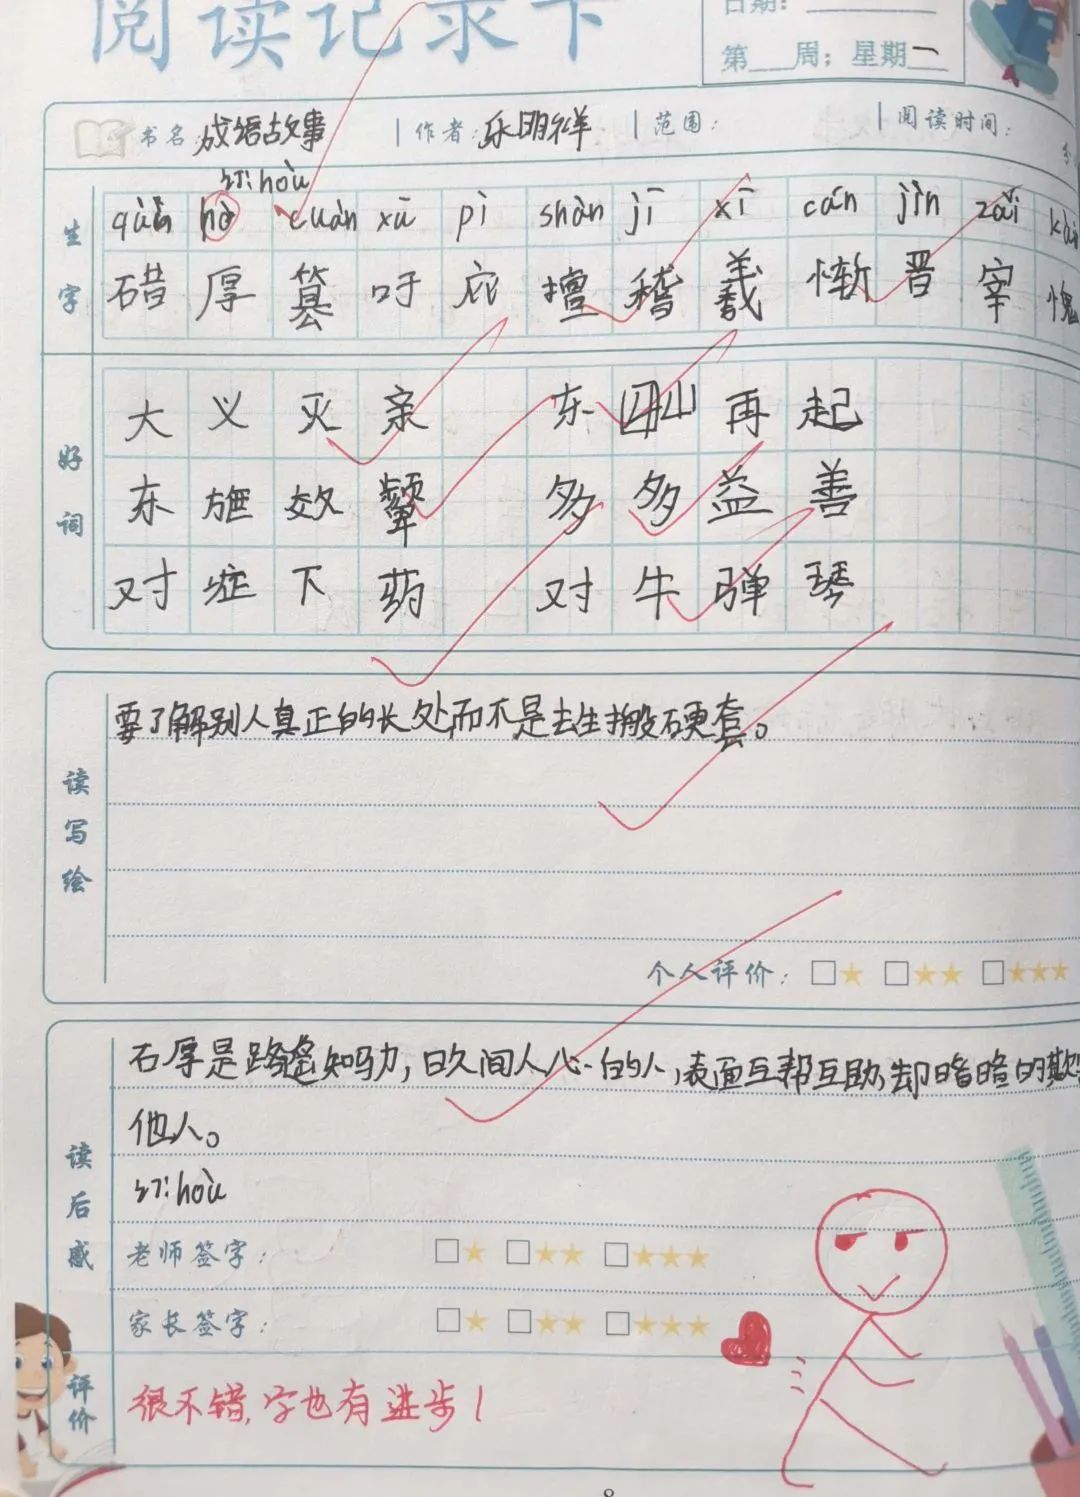 阅读记录卡
日期：
第 周；星期一
书名：成语故事 作者：乐明祥 范围： 阅读时间：
订：hòu
生字
què hò cuàn xū pì shàn jī xī cán jìn zǎi
碏 厚 篡 吁 庇 擅 稽 羲 惭 晋 宰 愧
好词
大义灭亲 东山再起
东施效颦 多多益善
对症下药 对牛弹琴
读写绘
要了解别人真正的长处,而不是去生搬硬套。
个人评价：□★ □★★ □★★★
读后感
石厚是路遥知马力,日久间人心的人,表面互帮互助,却暗暗的欺
他人。
订：hòu
老师签字： □★ □★★ □★★★
家长签字： □★ □★★ □★★★
评价
很不错,字也有进步！